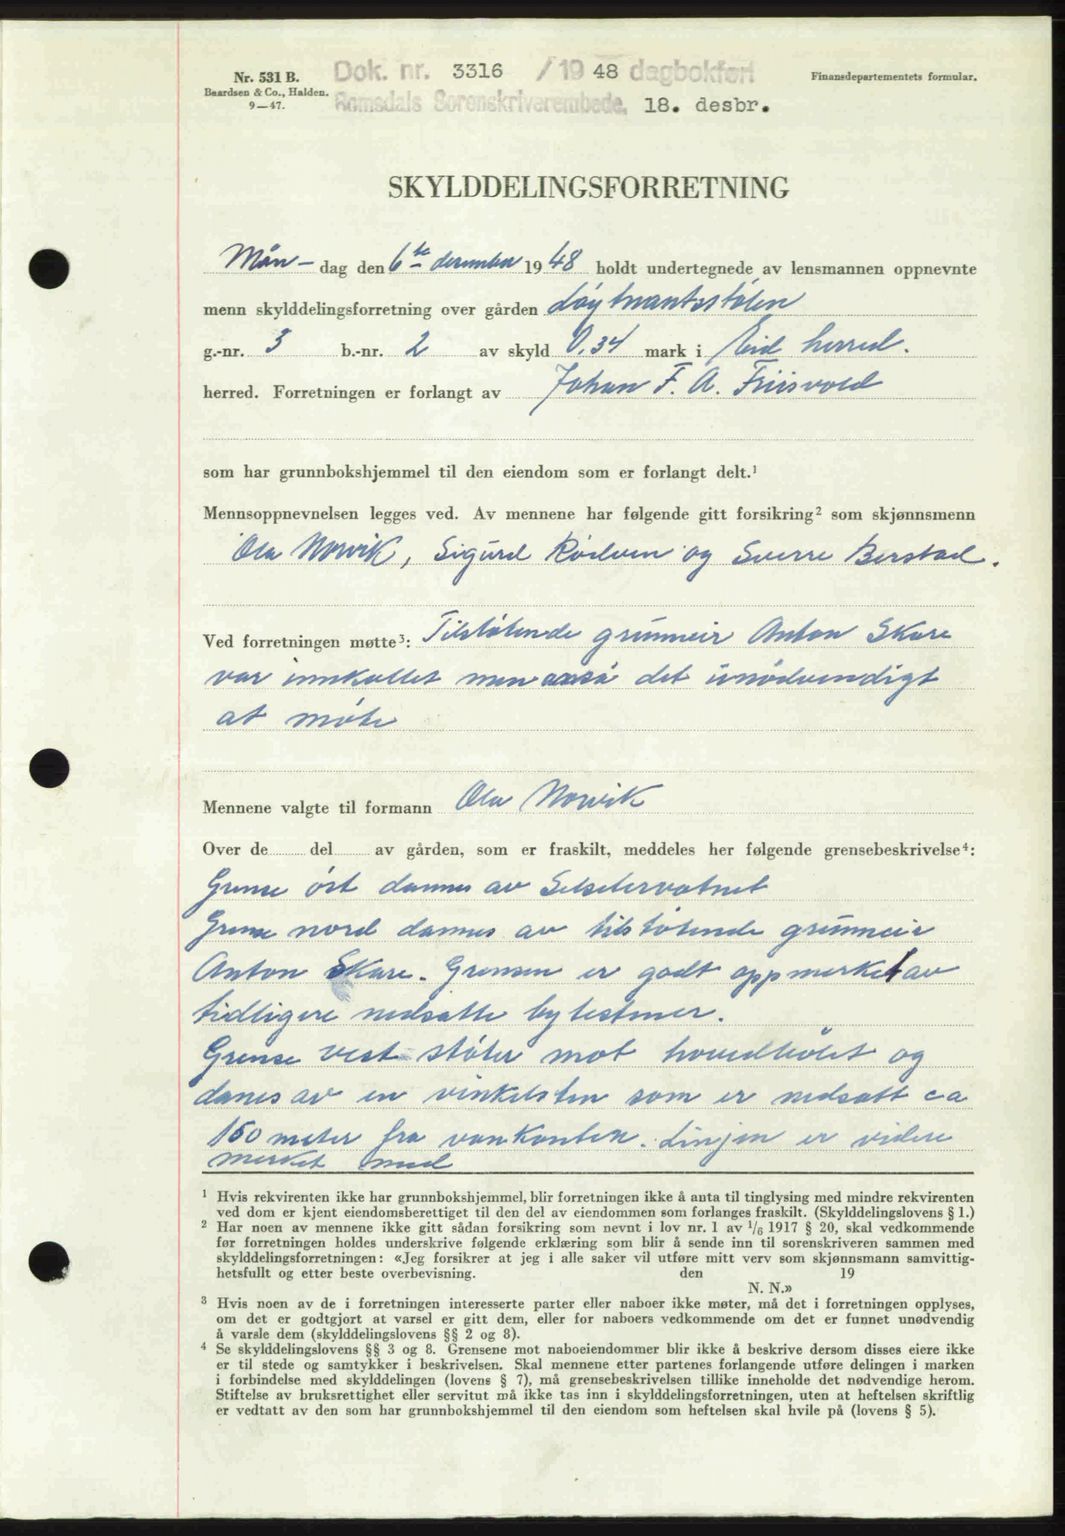 Nr. 531 B.
Baardsen & Co., Halden.
9—47.
Dok. nr. 3316 / 19 48 dagbokført
Romsdals Sorenskriverembede, 18. desbr.
Finansdepartementets formular.
SKYLDDELINGSFORRETNING
Mån- dag den 6te desember 19 48 holdt undertegnede av lensmannen oppnevnte
menn skylddelingsforretning over gården Løytnantsstølen
g.-nr. 3 b.-nr. 2 av skyld 0,34 mark i Eid herred.
herred. Forretningen er forlangt av Johan F. A. Friisvold
som har grunnbokshjemmel til den eiendom som er forlangt delt.¹
Mennsoppnevnelsen legges ved. Av mennene har følgende gitt forsikring² som skjønnsmenn
Ola Norvik, Sigurd Rödven og Sverre Berstad.
Ved forretningen møtte³: Tilstøtende grunneir Anton Skare
var innkallet men det unødvendigt
at møte
Mennene valgte til formann Ola Norvik
Over de del av gården, som er fraskilt, meddeles her følgende grensebeskrivelse⁴:
Grense öst dannes av Selsetervatnet
Grense nord dannes av tilstøtende grunneir
Anton Skare. Grensen er godt oppmerket av
tidligere nedsatte bytestener.
Grense vest støter mot hovedbölet og
danes av en vinkelsten som er nedsatt ca
150 meter fra vankanten. Linjen er videre
merket med
¹ Hvis rekvirenten ikke har grunnbokshjemmel, blir forretningen ikke å anta til tinglysing med mindre rekvirenten
ved dom er kjent eiendomsberettiget til den del av eiendommen som forlanges fraskilt. (Skylddelingslovens § 1.)
² Har noen av mennene ikke gitt sådan forsikring som nevnt i lov nr. 1 av 1/6 1917 § 20, skal vedkommende
før forretningen holdes underskrive følgende erklæring som blir å sende inn til sorenskriveren sammen med
skylddelingsforretningen: «Jeg forsikrer at jeg i alle saker vil utføre mitt verv som skjønnsmann samvittig-
hetsfullt og etter beste overbevisning. den 19
N. N.»
³ Hvis noen av de i forretningen interesserte parter eller naboer ikke møter, må det i forretningen opplyses,
om det er godtgjort at varsel er gitt dem, eller for naboers vedkommende om det er funnet unødvendig
å varsle dem (skylddelingslovens §§ 2 og 8).
⁴ Se skylddelingslovens §§ 3 og 8. Grensene mot naboeiendommer blir ikke å beskrive dersom disses eiere ikke
er til stede og samtykker i beskrivelsen. Skal mennene etter partenes forlangende utføre delingen i marken
i forbindelse med skylddelingen (lovens § 7), må grensebeskrivelsen tillike inneholde det nødvendige herom.
Stiftelse av bruksrettighet eller servitut må ikke tas inn i skylddelingsforretningen, uten at heftelsen skriftlig
er vedtatt av den som har grunnbokshjemmel til den eiendom som heftelsen skal hvile på (lovens § 5).